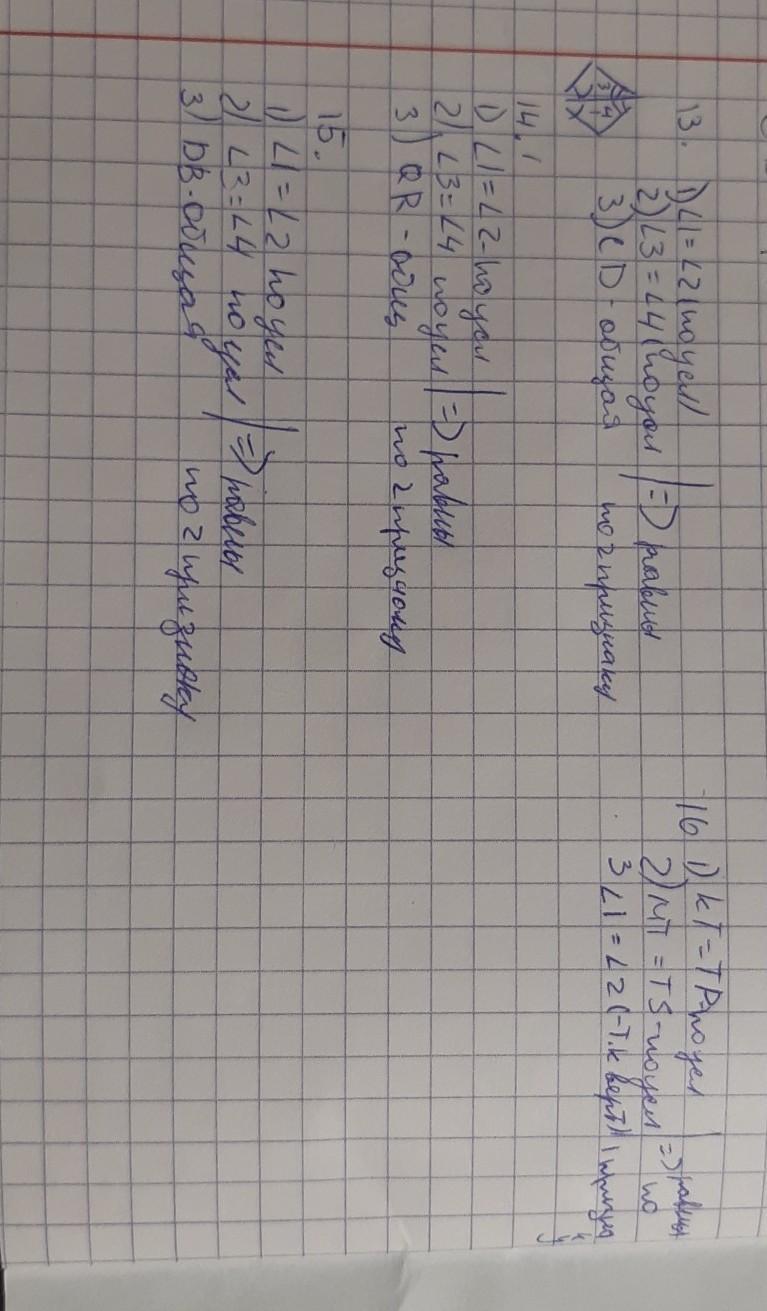 13.
1) ∠1 = ∠2 (по усл)
2) ∠3 = ∠4 (по усл | => равны
3) CD - общая по 2 признаку
3 4
14.
1) ∠1 = ∠2 - по усл
2) ∠3 = ∠4 по усл | => равны
3) QR - общ по 2 признаку
15.
1) ∠1 = ∠2 по усл
2) ∠3 = ∠4 по усл | => равны
3) DB - общая по 2 признаку
16
1) KT = TP - по усл
2) MT = TS - по усл => равны
по
3 ∠1 = ∠2 (-т.к верт) 1